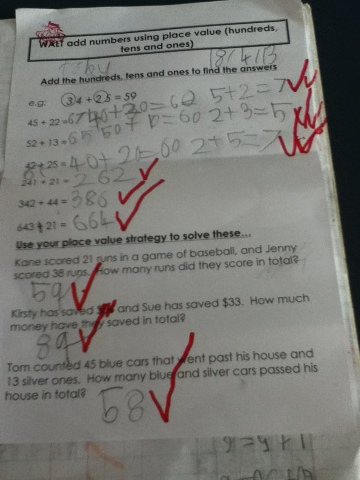 WALT add numbers using place value (hundreds, tens and ones)
18/4/13
Add the hundreds, tens and ones to find the answers
e.g. 34 + 25 = 59
5+2=7
45 + 22 = 67 40+20=60
2+3=5
52 + 13 = 65 50+10=60
42 + 25 = 40+20=60 2+5=7
241 + 21 = 262
342 + 44 = 386
643 + 21 = 664
Use your place value strategy to solve these…
Kane scored 21 runs in a game of baseball, and Jenny
scored 38 runs. How many runs did they score in total?
59
Kirsty has saved and Sue has saved $33. How much
money have they saved in total?
89
Tom counted 45 blue cars that went past his house and
13 silver ones. How many blue and silver cars passed his
house in total?
58